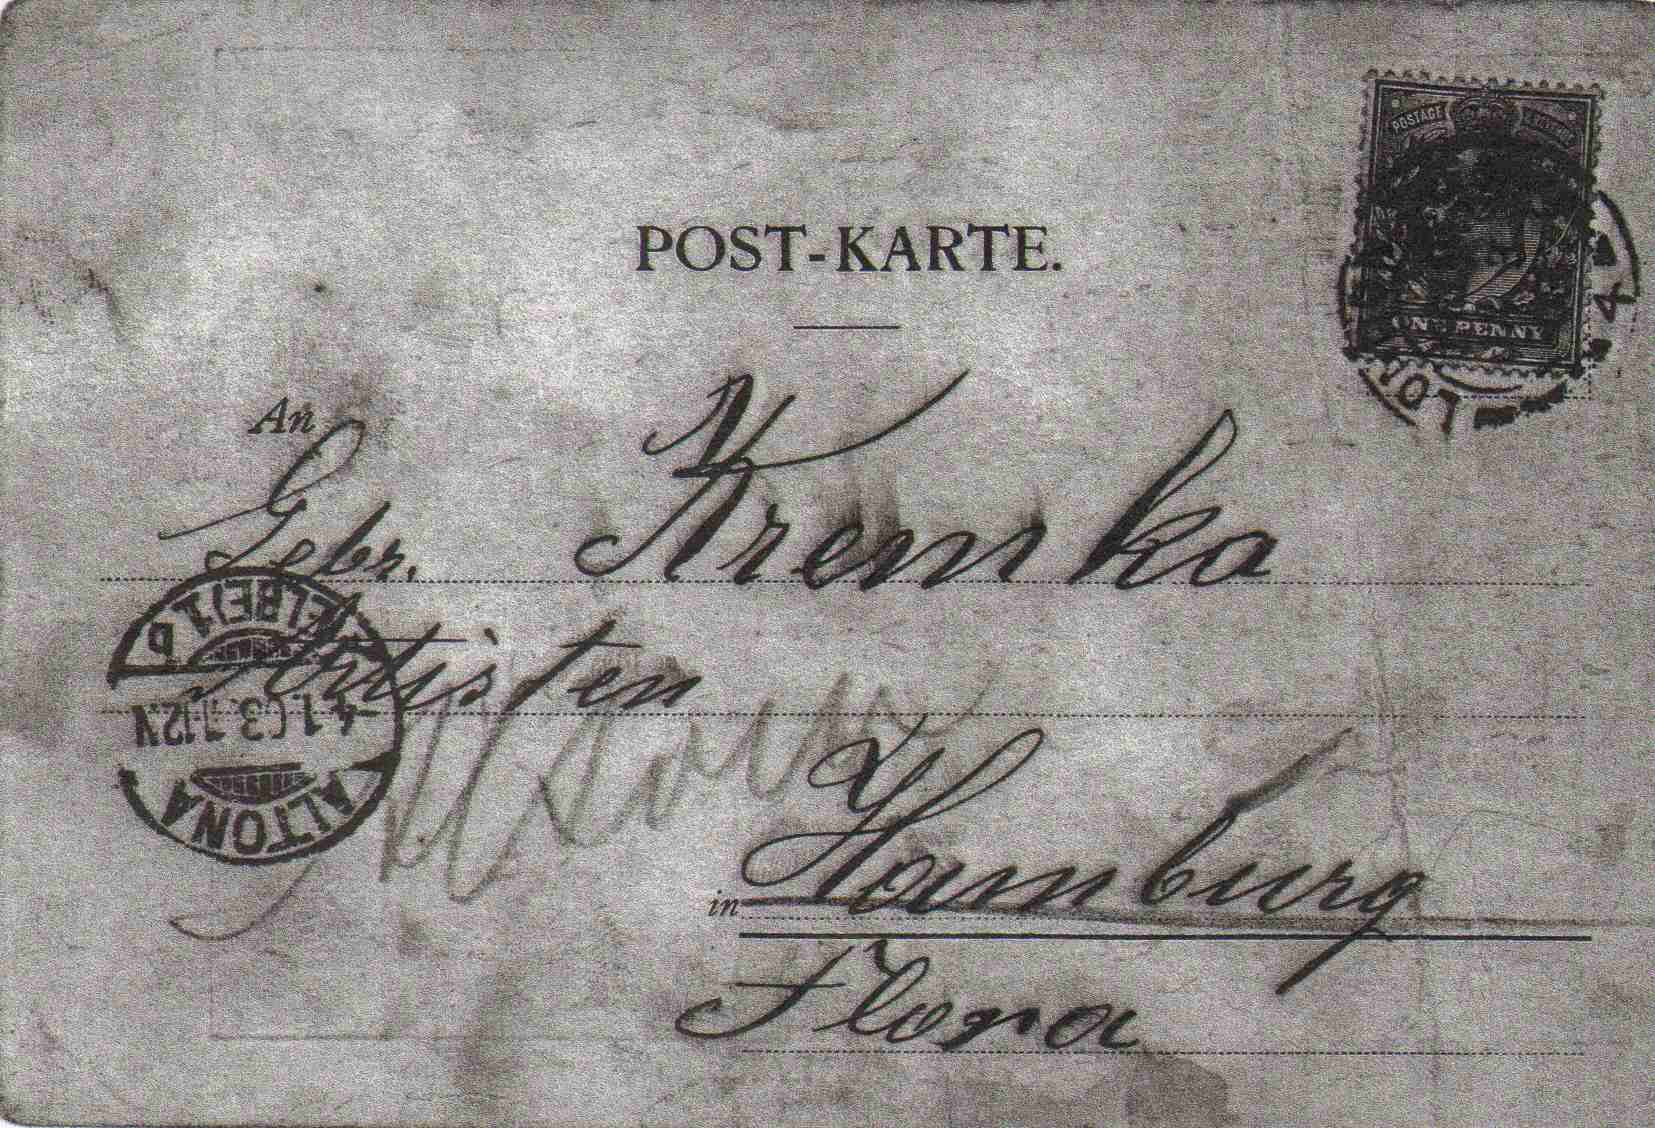 POSTAGE & REVENUE
ONE PENNY
POST-KARTE.
An
Gebr. Kremka
Artisten
in Hamburg
Flora
ALTONA
-4.1.03.
(ELBE)1